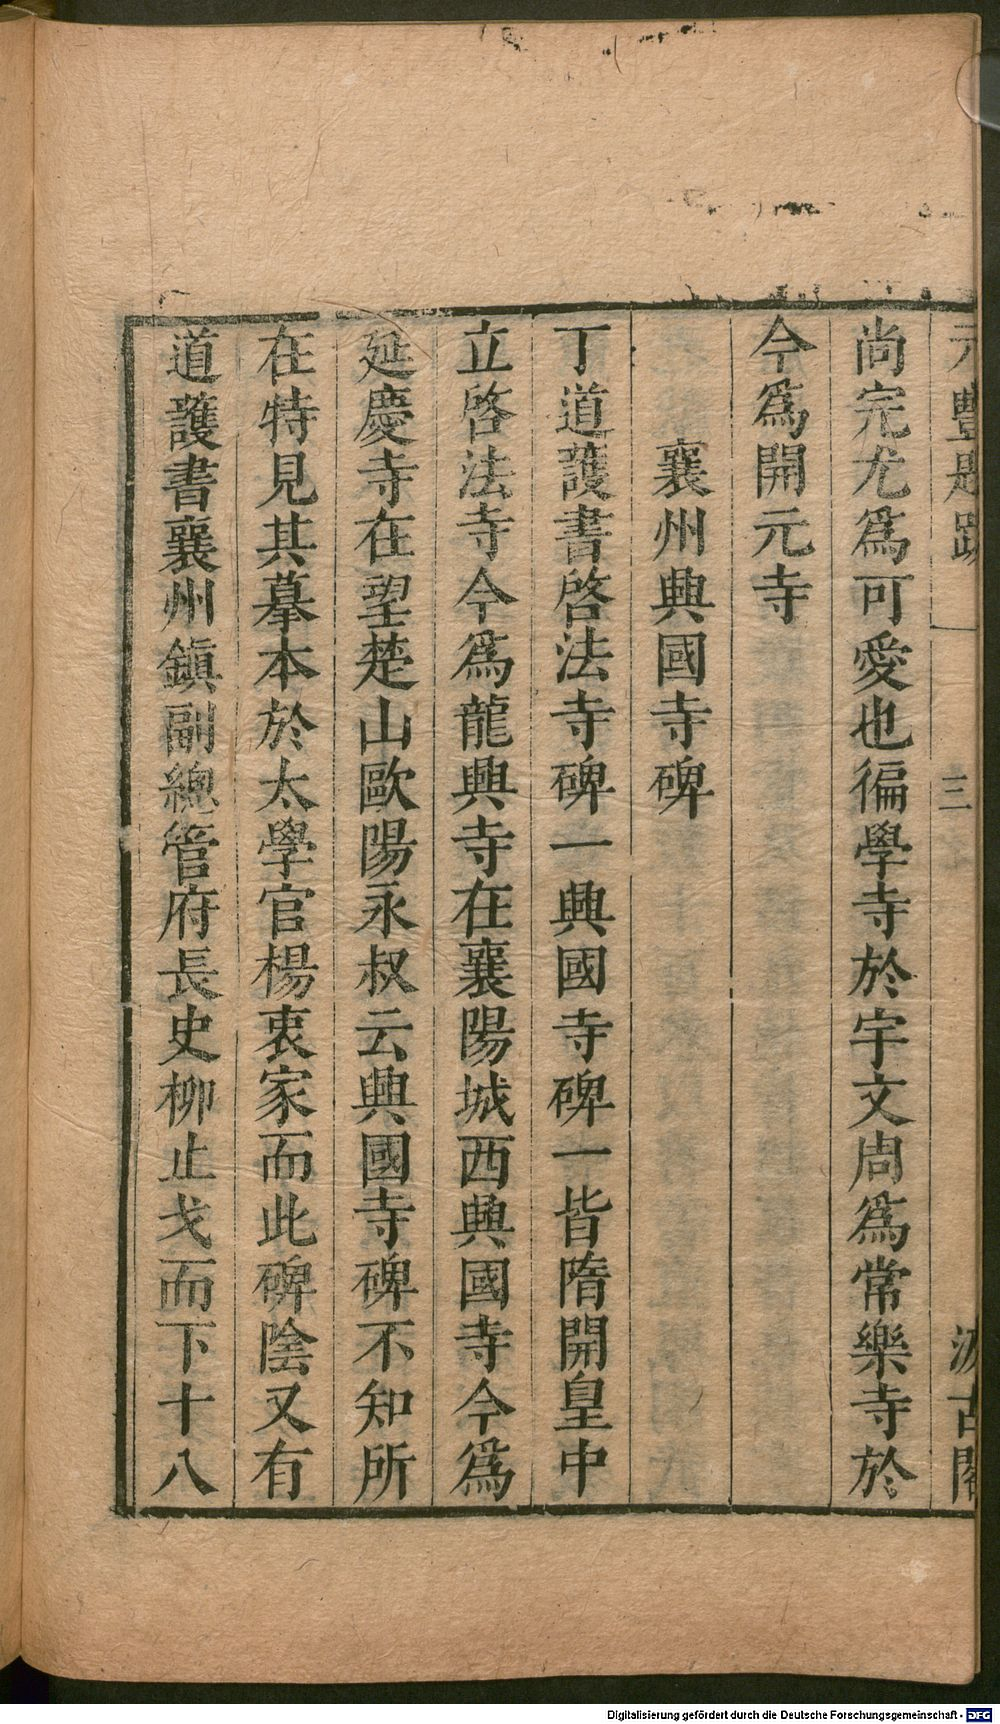 元豐題跋
三
汲古閣
尚完尤爲可愛也徧學寺於宇文周爲常樂寺於
今爲開元寺
襄州興國寺碑
丁道護書啓法寺碑一興國寺碑一皆隋開皇中
立啓法寺今爲龍興寺在襄陽城西興國寺今爲
延慶寺在望楚山歐陽永叔云興國寺碑不知所
在特見其摹本於太學官楊衷家而此碑陰又有
道護書襄州鎮副總管府長史柳止戈而下十八
Digitalisierung gefördert durch die Deutsche Forschungsgemeinschaft - DFG